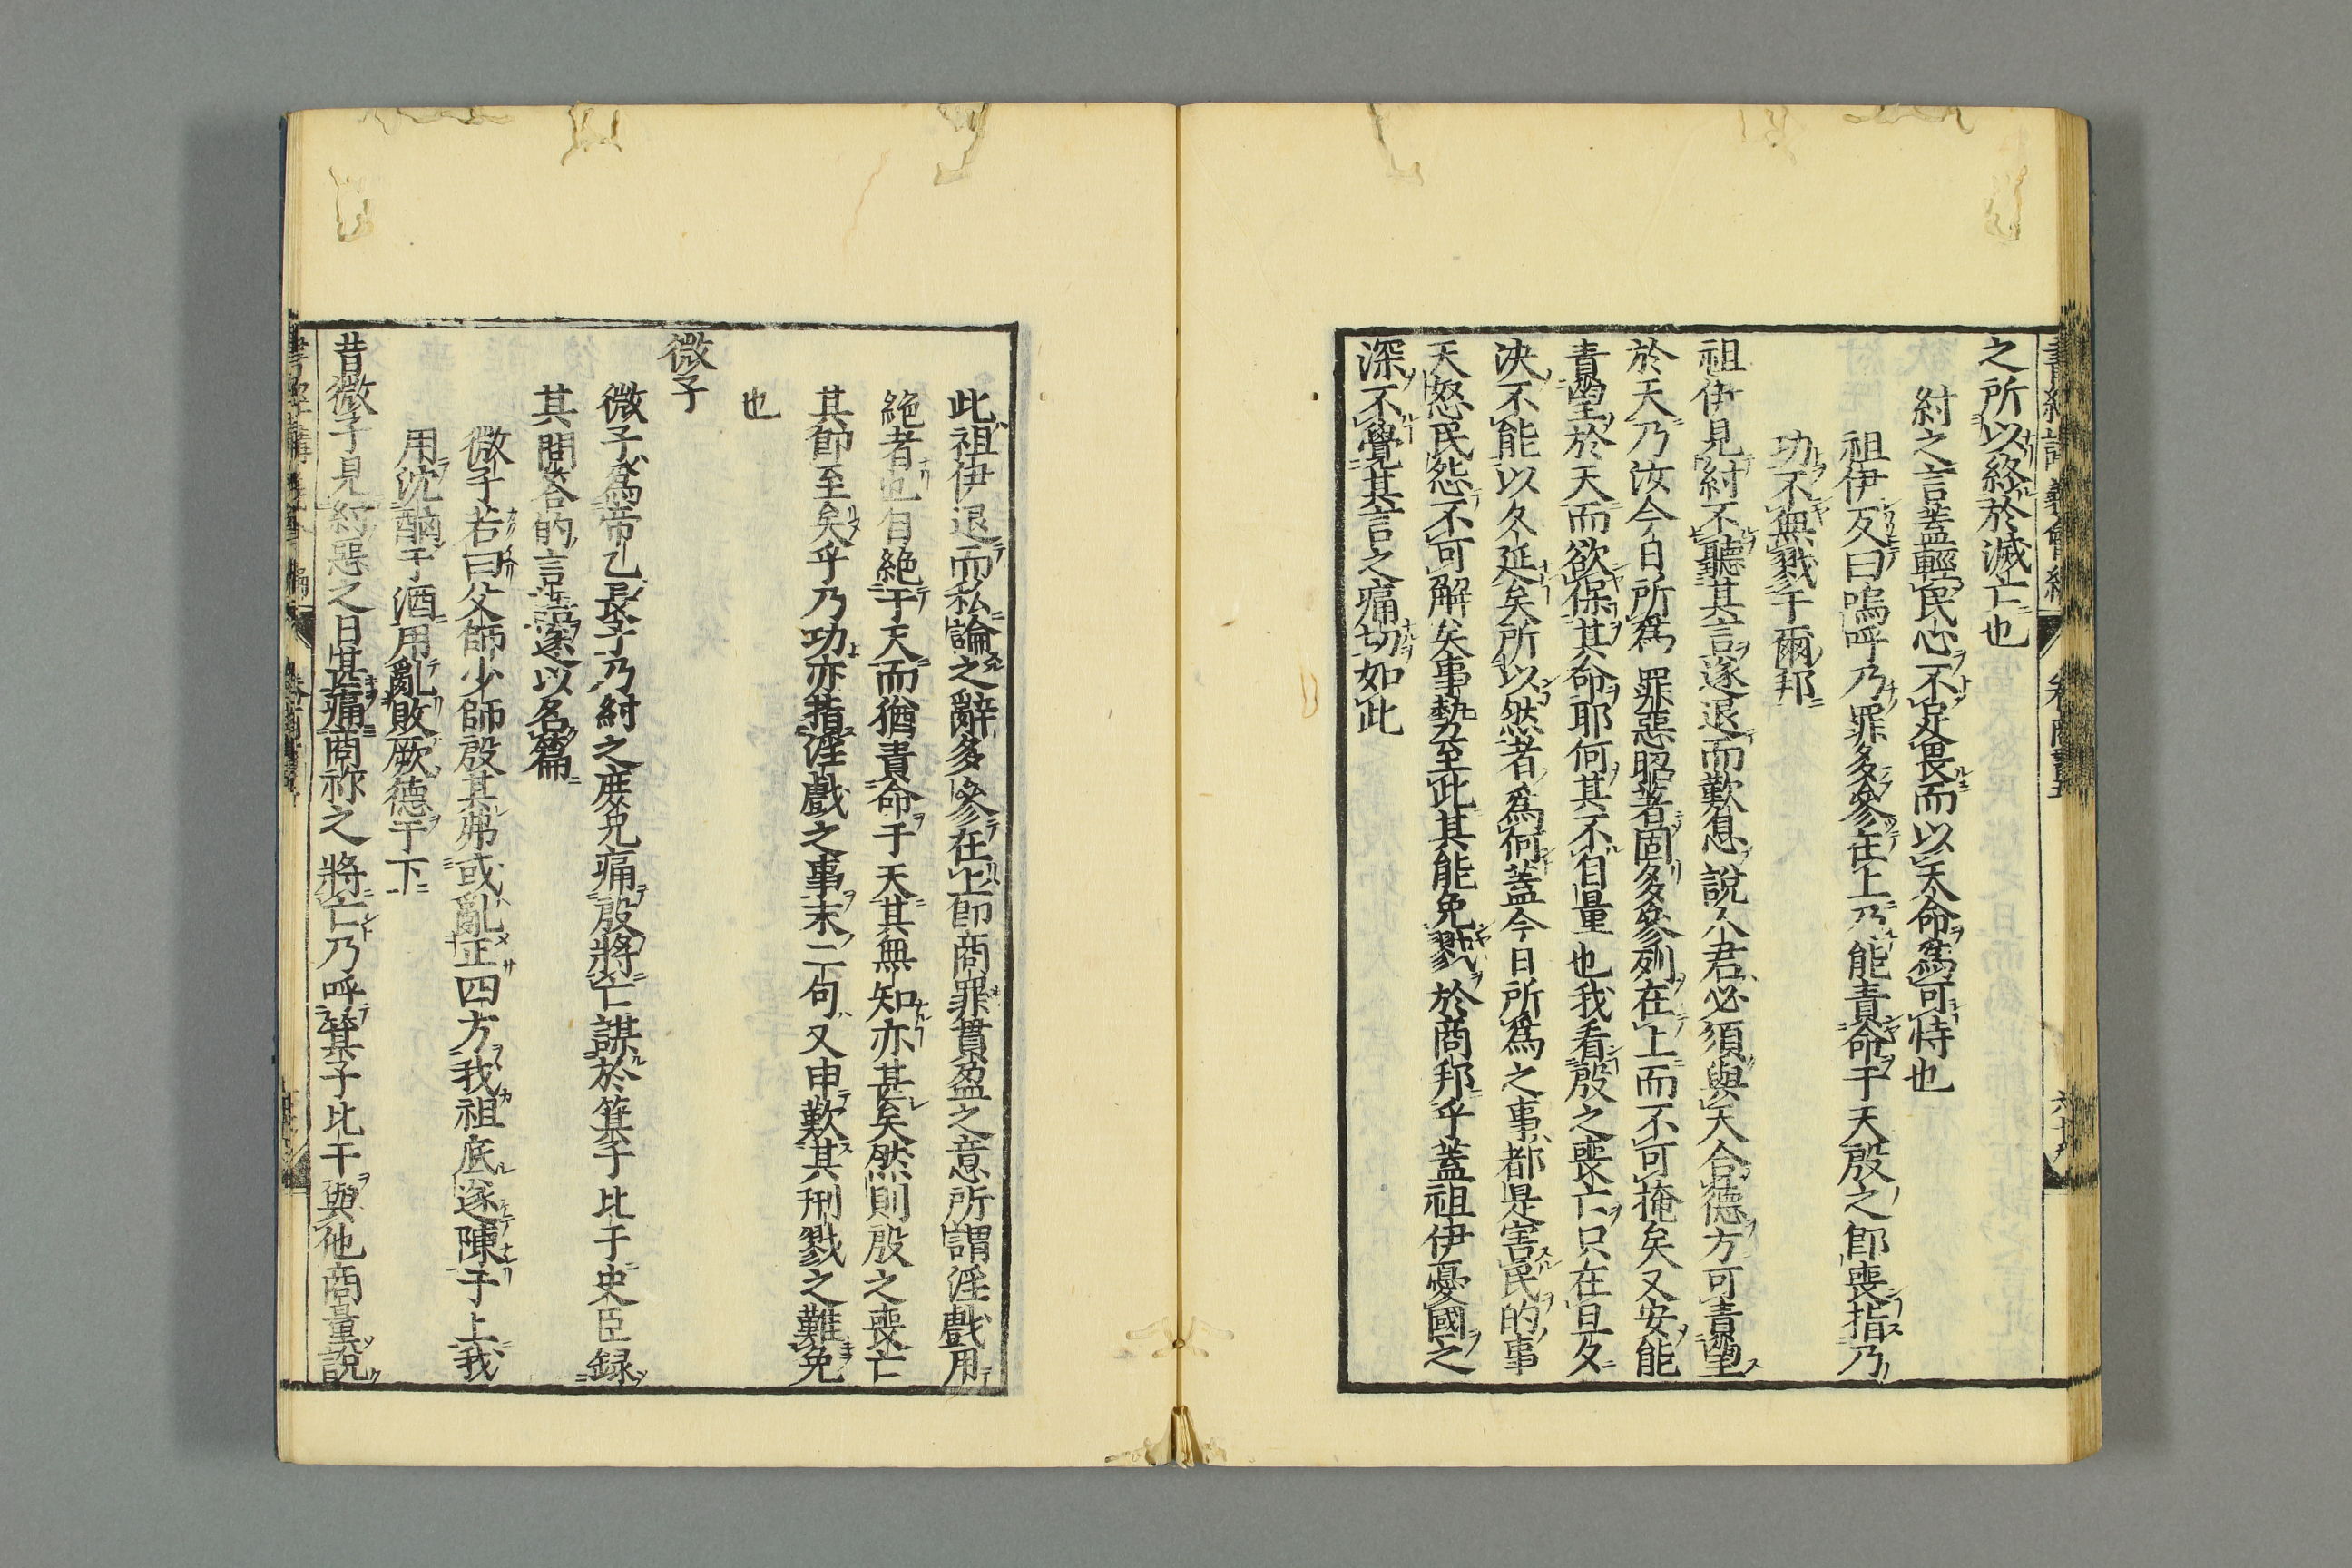 之所以終於滅亡也
紂之言蓋輕民心不足畏而以天命爲可恃也
祖伊反曰嗚呼乃罪多參在上乃能責命于天殷之卽喪指乃
功不無戮于爾邦
祖伊見紂不聽其言遂退而歎息說人君必須與天合德方可責望
於天乃汝今日所爲罪惡昭著固多參列在上而不可掩矣又安能
責望於天而欲保其命耶何其不自量也我看殷之喪亡只在旦夕
決不能以久延矣所以然者爲何蓋今日所爲之事都是害民的事
天怒民怨不可解矣事勢至此其能免戮於商邦乎蓋祖伊憂國之
深不覺其言之痛切如此
此祖伊退而私論之辭多參在上卽商罪貫盈之意所謂淫戲用
絶者也自絶于天而猶責命于天其無知亦甚矣然則殷之喪亡
其卽至矣乎乃功亦指淫戲之事末二句又申歎其刑戮之難免
也
微子
微子爲帝乙長子乃紂之庶兄痛殷將亡謀於箕子比干史臣録
其問答的言語遂以名篇
微子若曰父師少師殷其弗或亂正四方我祖底遂陳于上我
用沈酗于酒用亂敗厥德于下
昔微子見紂惡之日甚痛商祚之將亡乃呼箕子比干與他商量說